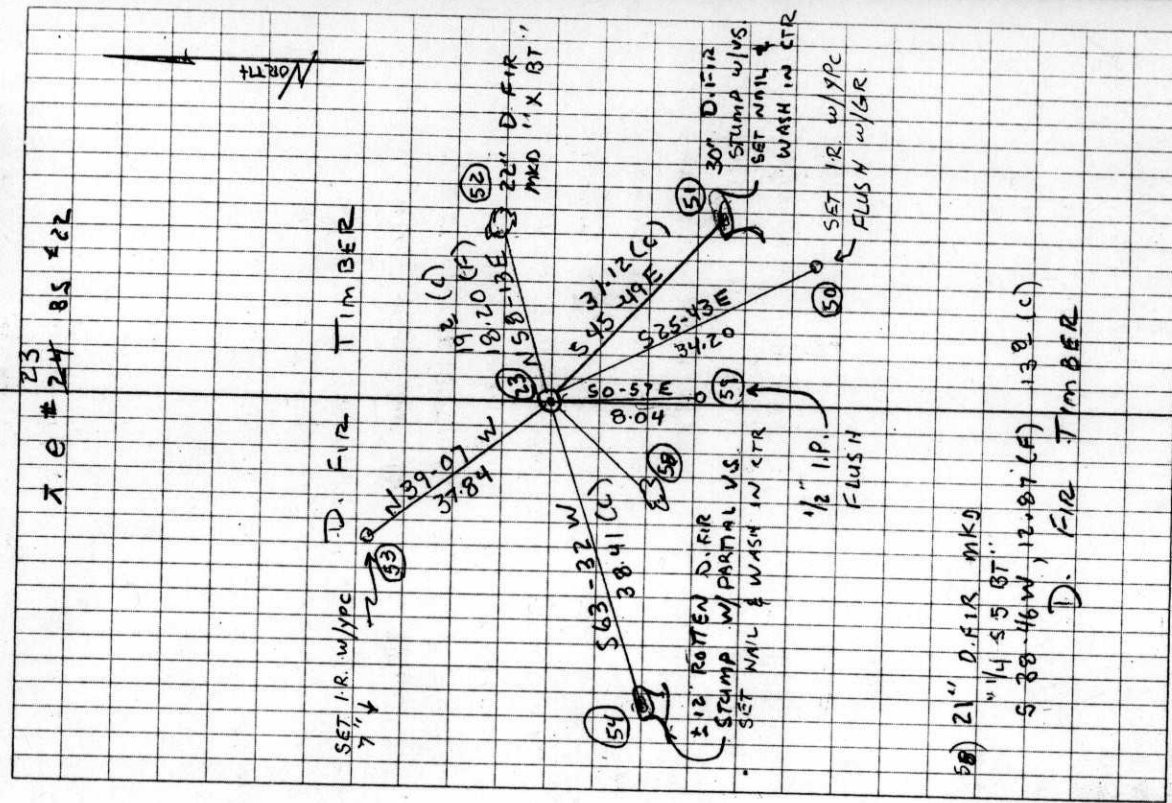 23
π @ # 24 BS # 22
NORTH
D. FIR TIMBER
SET I.R. W/YPC
7" ↓
53
N 39-07 W
37.84
(C)
18.20 (F)
N 58-13 E
52
22" D. FIR
MKD "X BT"
23
S 45-49 E
31.12 (C)
51
30" D. FIR
STUMP W/VS.
SET NAIL &
WASH IN CTR
S 25-43 E
34.20
50
SET I.R. W/YPC
FLUSH W/GR.
S 0-57 E
8.04
59
1/2" I.P.
FLUSH
58
S 63-32 W
38.41 (C)
54
± 12" ROTTEN D. FIR
STUMP W/PARTIAL VS.
SET NAIL & WASH IN CTR
58) 21" D. FIR MKD
"1/4 S 5 BT"
S 38-46 W, 12.87 (F) 13.0 (C)
D. FIR TIMBER